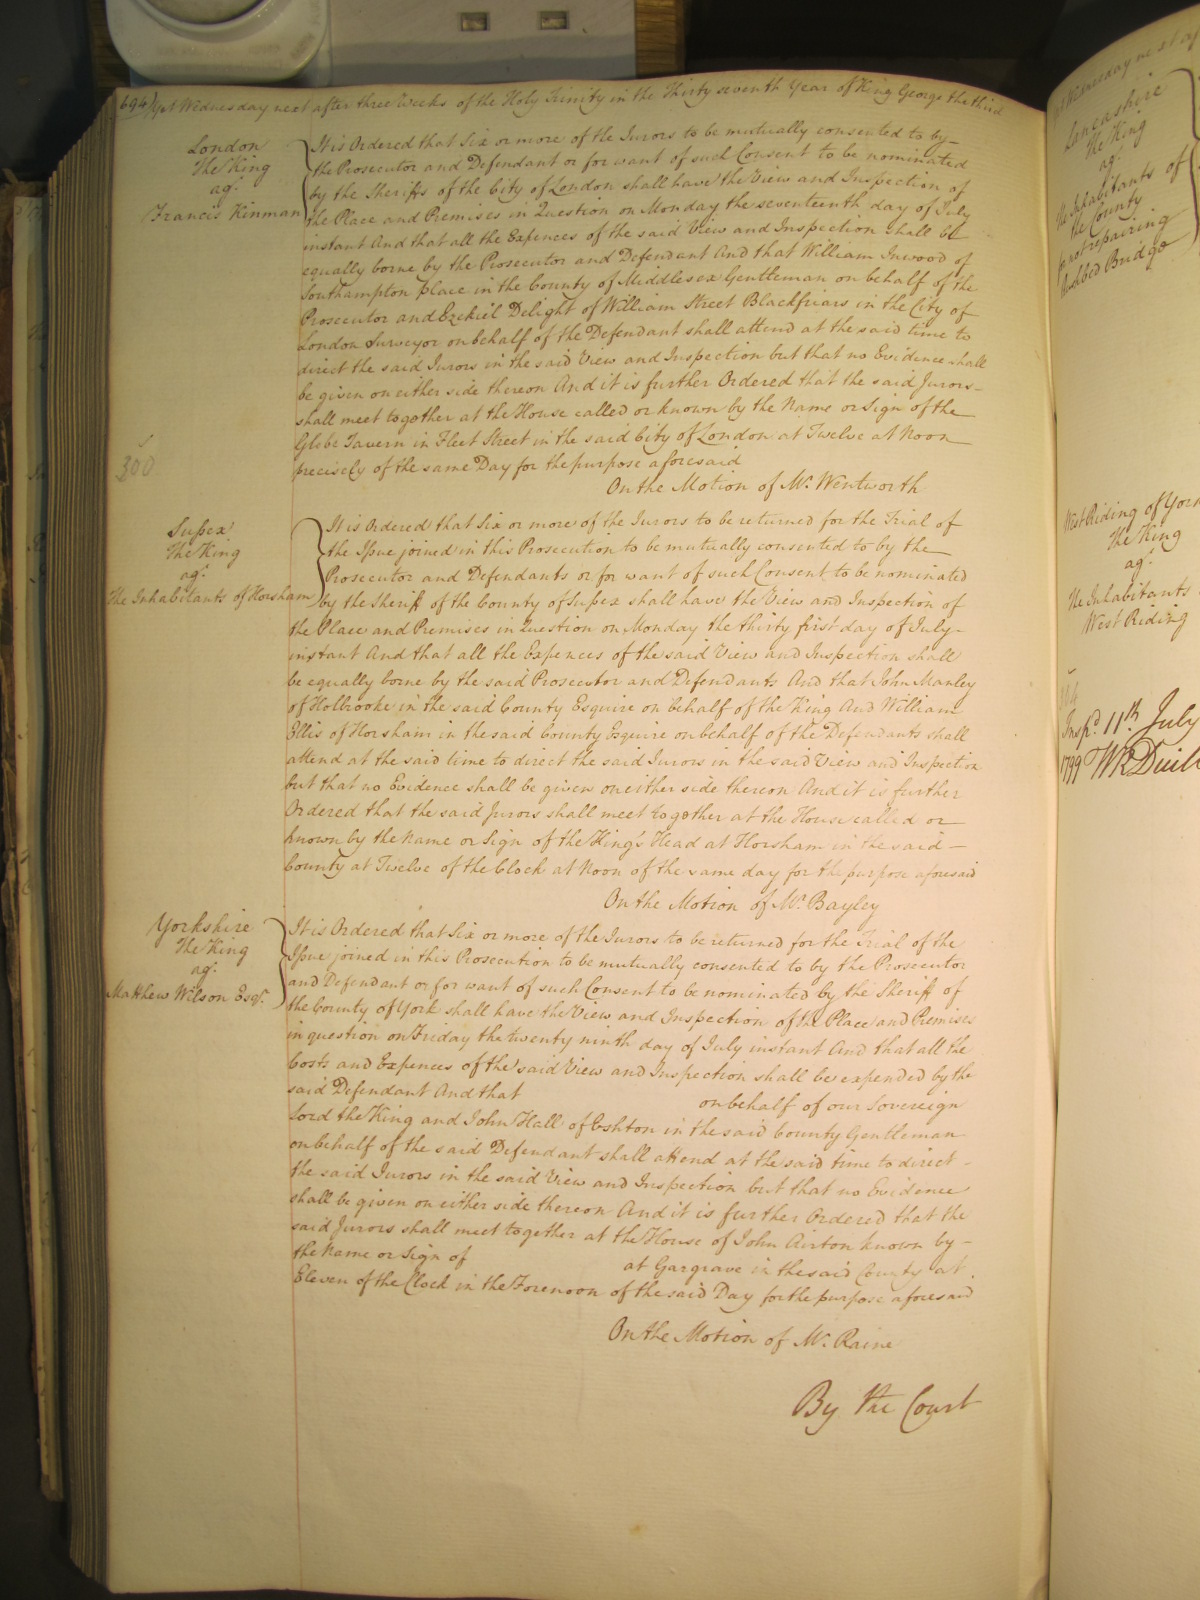 694) Yet Wednesday next after three Weeks of the Holy Trinity in the Thirty seventh Year of King George the third
London
The King
agt.
Francis Kinman
It is Ordered that Six or more of the Jurors to be mutually consented to by
the Prosecutor and Defendant or for want of such Consent to be nominated
by the Sheriffs of the City of London shall have the View and Inspection of
the Place and Premises in Question on Monday the seventeenth day of July
instant And that all the Expences of the said View and Inspection shall be
equally borne by the Prosecutor and Defendant And that William Inwood of
Southampton place in the County of Middlesex Gentleman on behalf of the
Prosecutor and Ezekiel Delight of William Street Blackfriars in the City of
London Surveyor on behalf of the Defendant shall attend at the said time to
direct the said Jurors in the said View and Inspection but that no Evidence shall
be given on either side thereon And it is further Ordered that the said Jurors
shall meet together at the House called or known by the Name or Sign of the
Globe Tavern in Fleet Street in the said City of London at Twelve at Noon
precisely of the same Day for the purpose aforesaid
300
On the Motion of Mr. Wentworth
Sussex
The King
agt.
The Inhabitants of Horsham
It is Ordered that Six or more of the Jurors to be returned for the Trial of
the Issue joined in this Prosecution to be mutually consented to by the
Prosecutor and Defendants or for want of such Consent to be nominated
by the Sheriff of the County of Sussex shall have the View and Inspection of
the Place and Premises in Question on Monday the thirty first day of July
instant And that all the Expences of the said View and Inspection shall
be equally borne by the said Prosecutor and Defendants And that John Manley
of Holbrooke in the said County Esquire on behalf of the King And William
Ellis of Horsham in the said County Esquire on behalf of the Defendants shall
attend at the said time to direct the said Jurors in the said View and Inspection
but that no Evidence shall be given on either side thereon And it is further
Ordered that the said Jurors shall meet together at the House called or
known by the Name or Sign of the King's Head at Horsham in the said
County at Twelve of the Clock at Noon of the same day for the purpose aforesaid
On the Motion of Mr. Bayley
Yorkshire
The King
agt.
Matthew Wilson Esqr.
It is Ordered that Six or more of the Jurors to be returned for the Trial of the
Issue joined in this Prosecution to be mutually consented to by the Prosecutor
and Defendant or for want of such Consent to be nominated by the Sheriff of
the County of York shall have the View and Inspection of the Place and Premises
in question on Friday the twenty ninth day of July instant And that all the
Costs and Expences of the said View and Inspection shall be expended by the
said Defendant And that on behalf of our Sovereign
Lord the King and John Hall of Eshton in the said County Gentleman
on behalf of the said Defendant shall attend at the said time to direct
the said Jurors in the said View and Inspection but that no Evidence
shall be given on either side thereon And it is further Ordered that the
said Jurors shall meet together at the House of John Airton known by
the Name or Sign of at Gargrave in the said County at
Eleven of the Clock in the Forenoon of the said Day for the purpose aforesaid
On the Motion of Mr. Raine
By the Court
Lancashire
The King
agt.
The Inhabitants of
the County
for not repairing
Bridge
West Riding of York
The King
agt.
The Inhabitants
West Riding
Inspd. 11th July
1799